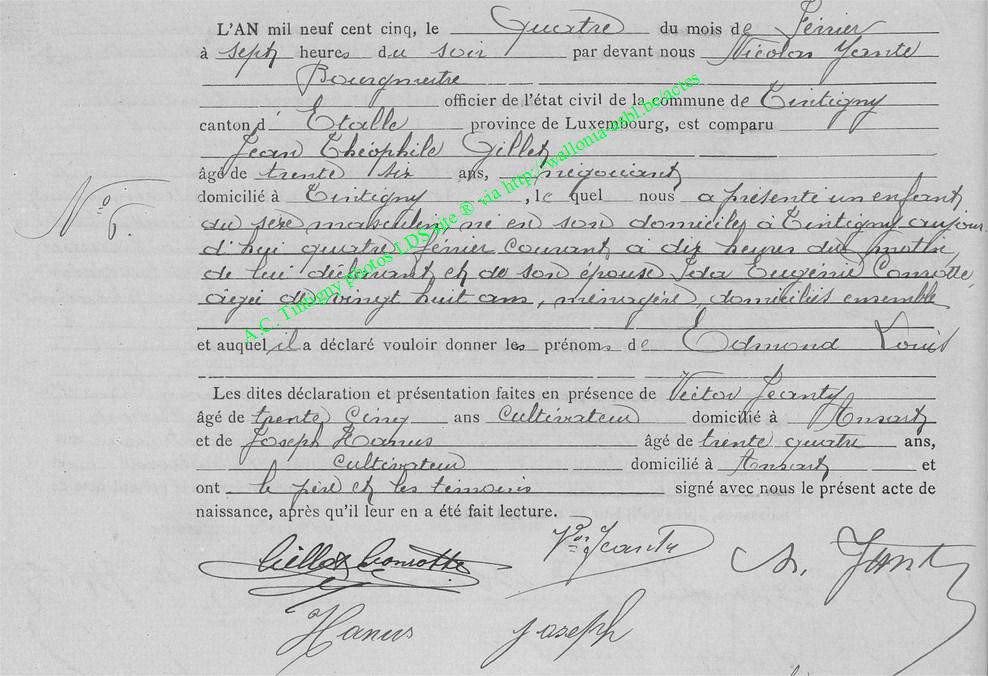 L'AN mil neuf cent cinq, le Quatre du mois de Février
à sept heures du soir par devant nous Nicolas Jante
Bourgmestre
officier de l'état civil de la commune de Tintigny
canton d' Etalle province de Luxembourg, est comparu
Jean Théophile Gillet
âgé de trente six ans, négociant
domicilié à Tintigny, le quel nous a présenté un enfant
du sexe masculin né en son domicile, à Tintigny aujour
d'hui quatre février courant à dix heures du matin,
de lui déclarant et de son épouse Ida Eugénie Comotte,
âgée de vingt huit ans, ménagère, domiciliés ensemble
et auquel il a déclaré vouloir donner les prénoms de Edmond Louis
Les dites déclaration et présentation faites en présence de Victor Jeanty
âgé de trente cinq ans Cultivateur domicilié à Ansart
et de Joseph Hanus âgé de trente quatre ans,
Cultivateur domicilié à Ansart et
ont le père et les témoins signé avec nous le présent acte de
naissance, après qu'il leur en a été fait lecture.
N° 6
Gillet Comotte
Vor Jeanty
N. Jante
Hanus Joseph
A.C. Tintigny photos LDS site ® via http://wallonia-asbl.be/actes